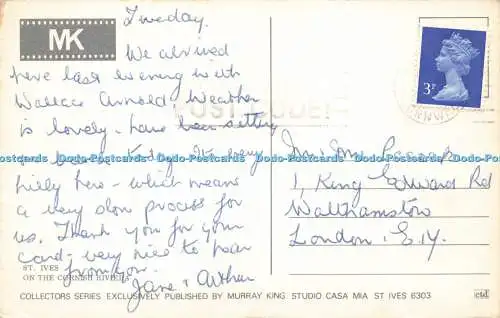 MK
Tuesday.
We arrived
here last evening with
Wallace Arnold. Weather
is lovely - have been sitting
on beach today. It is very
hilly here - which means
a very slow process for
us. Thank you for your
card - very nice to hear
from you.
Jane & Arthur
ST. IVES
ON THE CORNISH RIVIERA
3P
Mr & Mrs
1, King Edward Rd
Walthamstow
London. E.17.
COLLECTORS SERIES EXCLUSIVELY PUBLISHED BY MURRAY KING STUDIO CASA MIA ST IVES 6303
Dodo-Postcards Dodo-Postcards Dodo-Postcards Dodo-Postcards Dodo-Postcards Dodo-Postcards Dodo-Postcards